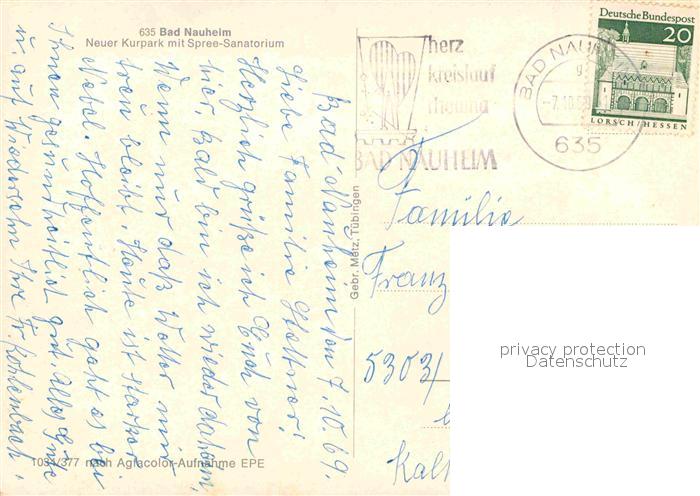 635 Bad Nauheim
Neuer Kurpark mit Spree-Sanatorium
Bad-Nauheim den 7.10.69.
Liebe Familie
Herzlich grüße ich Euch von
hier. Bald bin ich wieder daheim,
Wenn nur das Wetter mir
treu bleibt. Heute ist starker
Nebel. Hoffentlich geht es bei
Ihnen gesundheitlich gut. Alles Gute
u. auf Wiedersehn Ihre Fr. Kohlenbach.
1034/377 nach Agfacolor-Aufnahme EPE
Gebr. Metz, Tübingen
herz
kreislauf
rheuma
BAD NAUHEIM
BAD NAUHEIM
g
-7.10.69
635
Deutsche Bundespost
20
LORSCH/HESSEN
Familie
Franz
5303/
privacy protection
Datenschutz